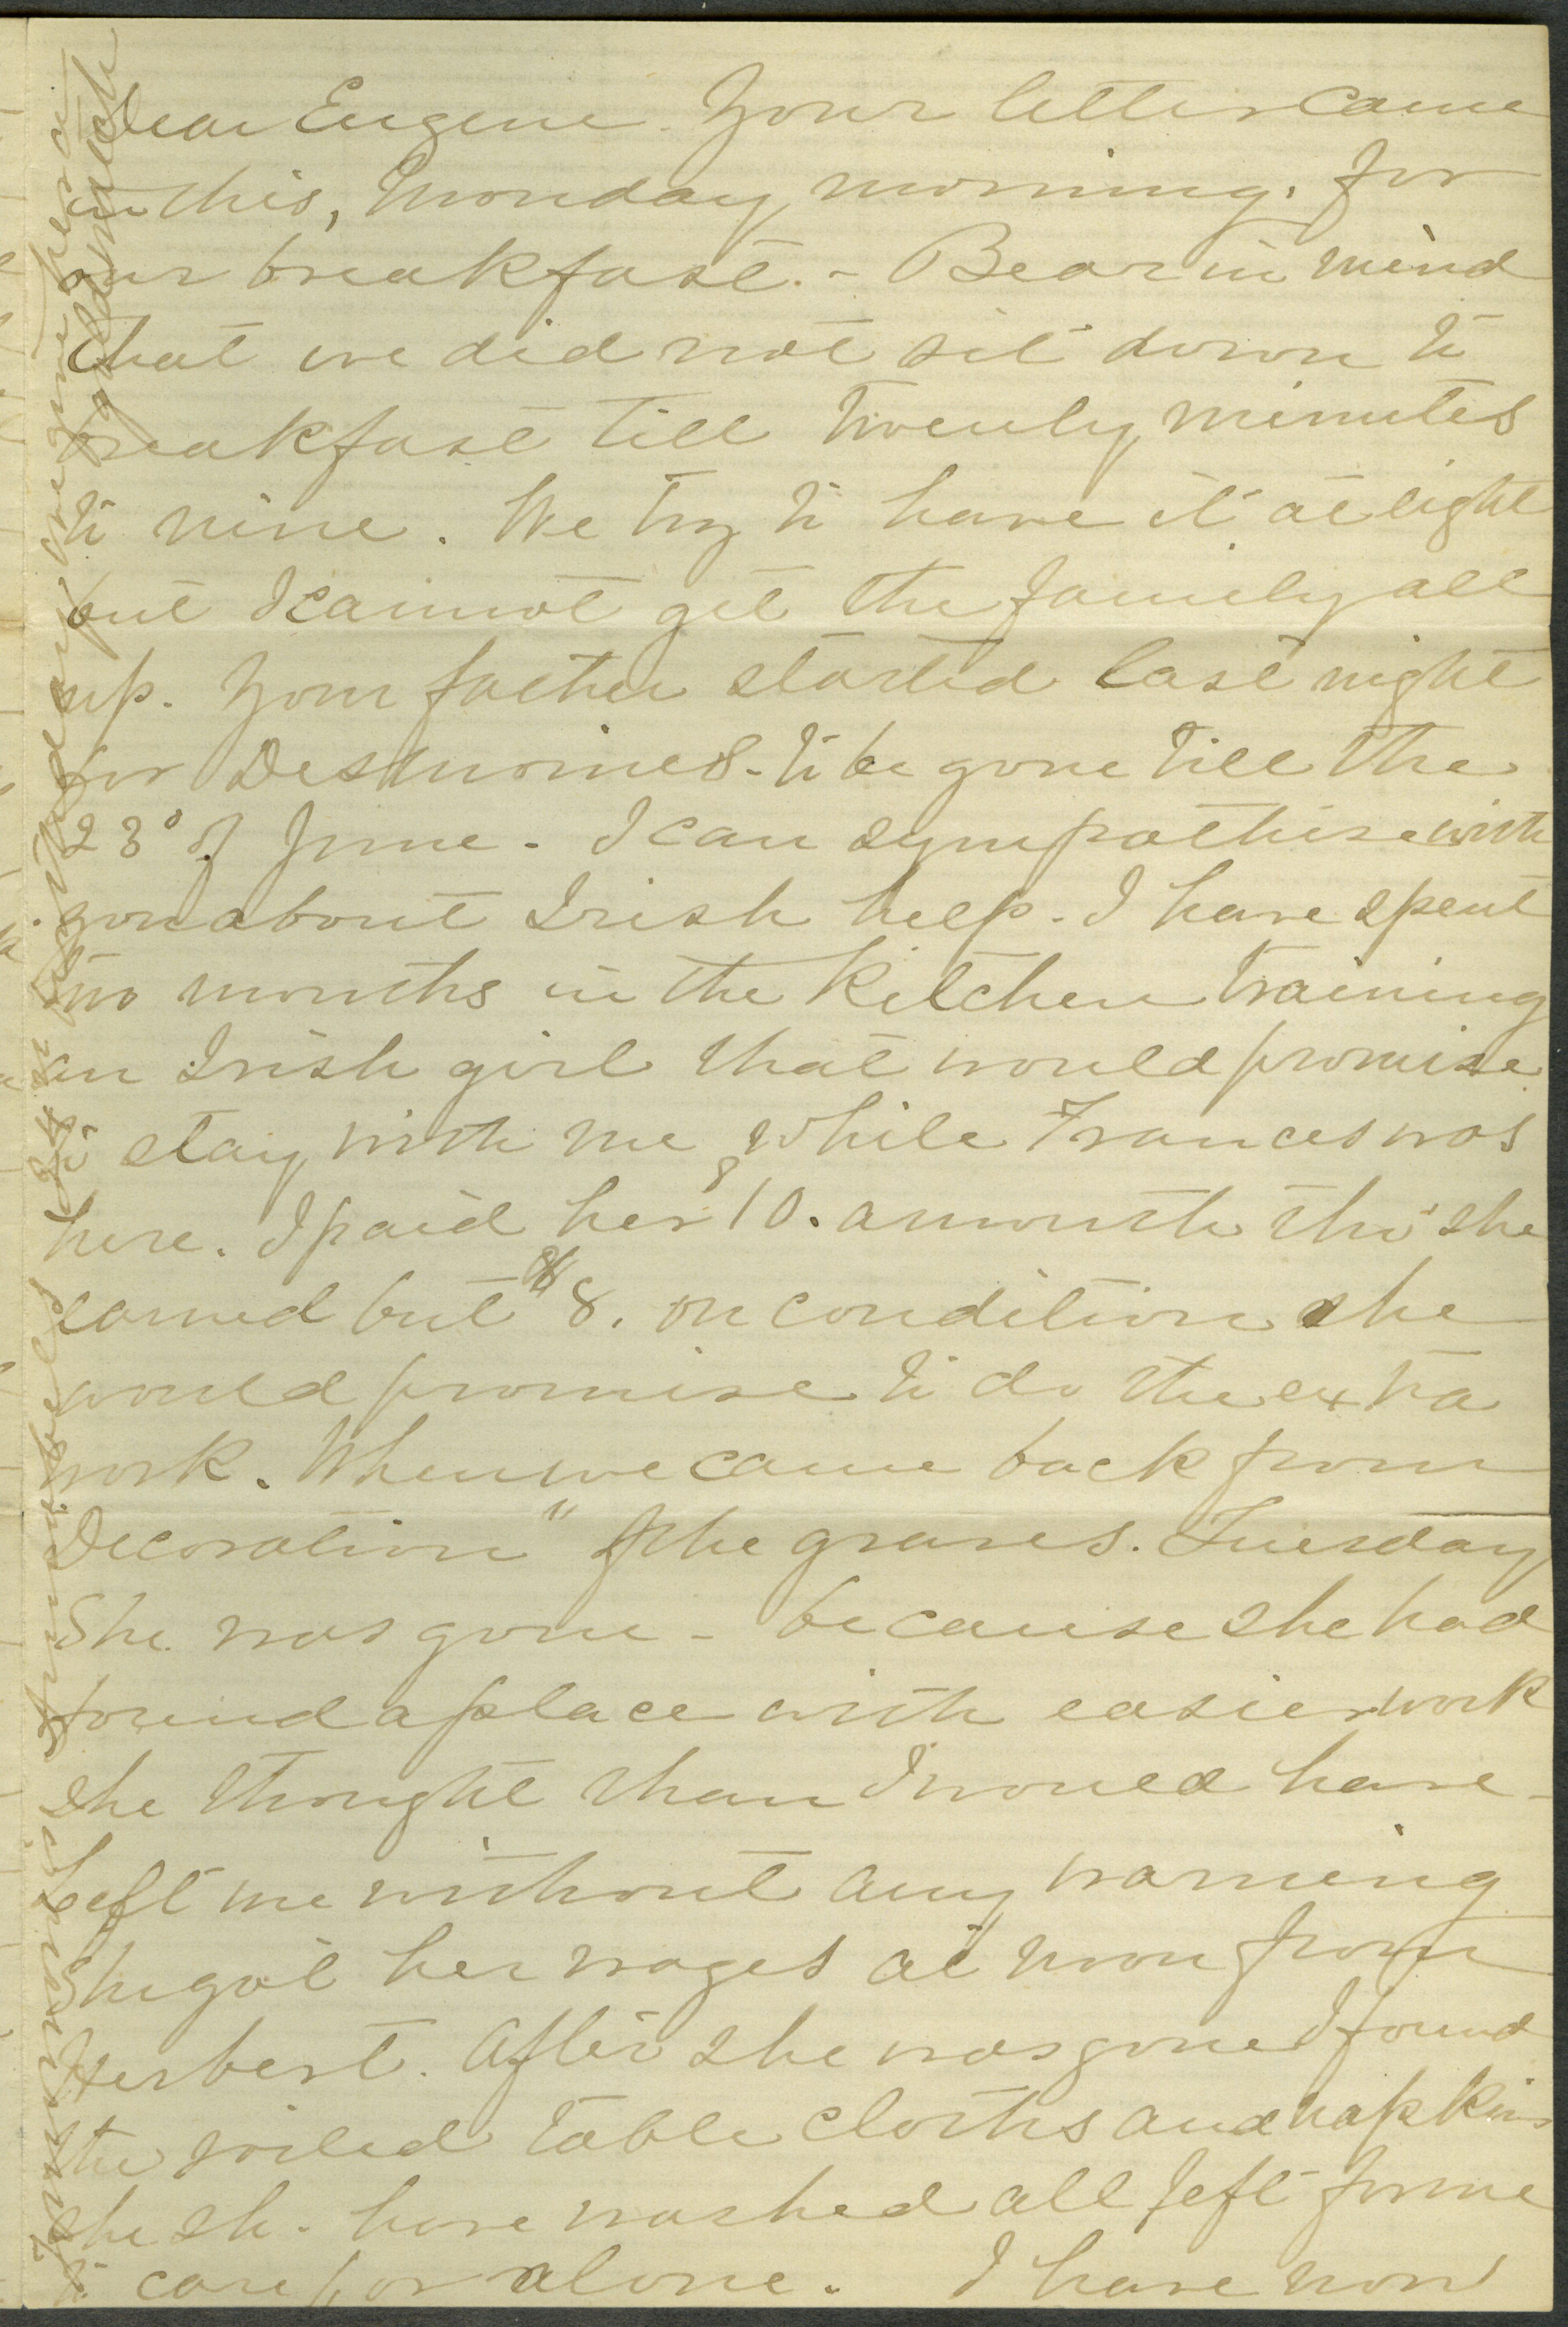 Dear Eugene. Your letter came
in this, Monday morning. for
our breakfast. - Bear in mind
that we did not sit down to
breakfast till twenty minutes
to nine. We try to have it at eight
but I cannot get the family all
up. Your father started last night
for Desmoines - to be gone till the
23d of June. I can sympathise with
you about Irish help. I have spent
two months in the kitchen training
an Irish girl that would promise
to stay with me while Frances was
here. I paid her 10. a month tho' she
earned but $8. on condition she
would promise to do the extra
work. When we came back from
Decoration" of the graves. Tuesday
She was gone - because she had
found a place with easier work
she thought than I would have -
Left me without any warning
She got her wages at noon from
Herbert. After she was gone I found
the soiled table cloths and napkins
she sh. have washed all left for me
to care for alone. I have now